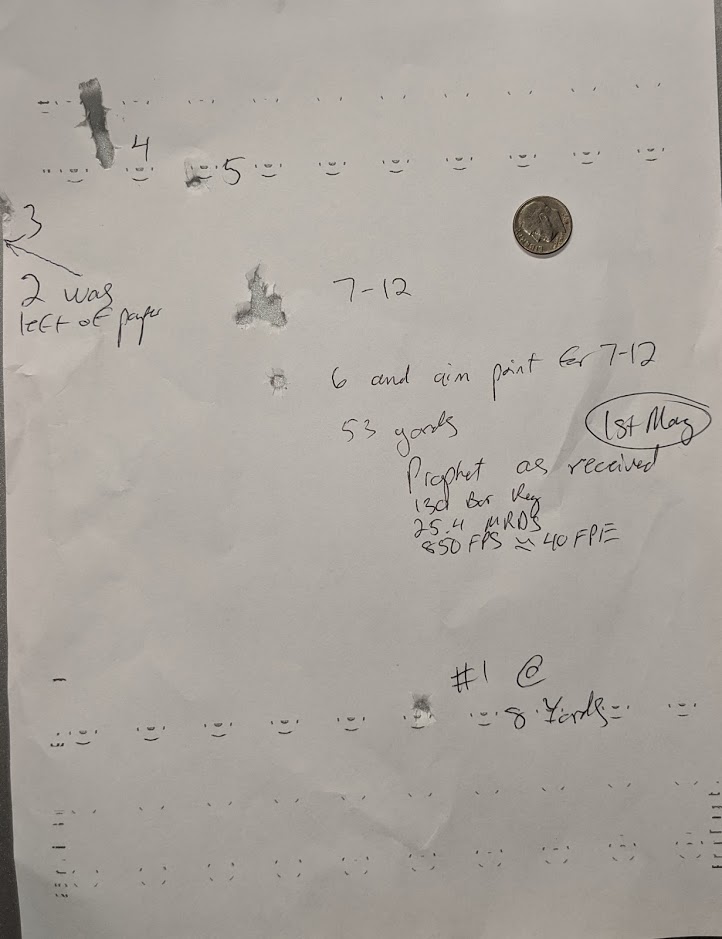 4
5
3
2 was
left of paper
7-12
6 and aim point for 7-12
53 yards
1st Mag
Prophet as received
130 Bar Reg
25.4 MRDS
850 FPS ≈ 40 FPE
#1 @
8 Yards